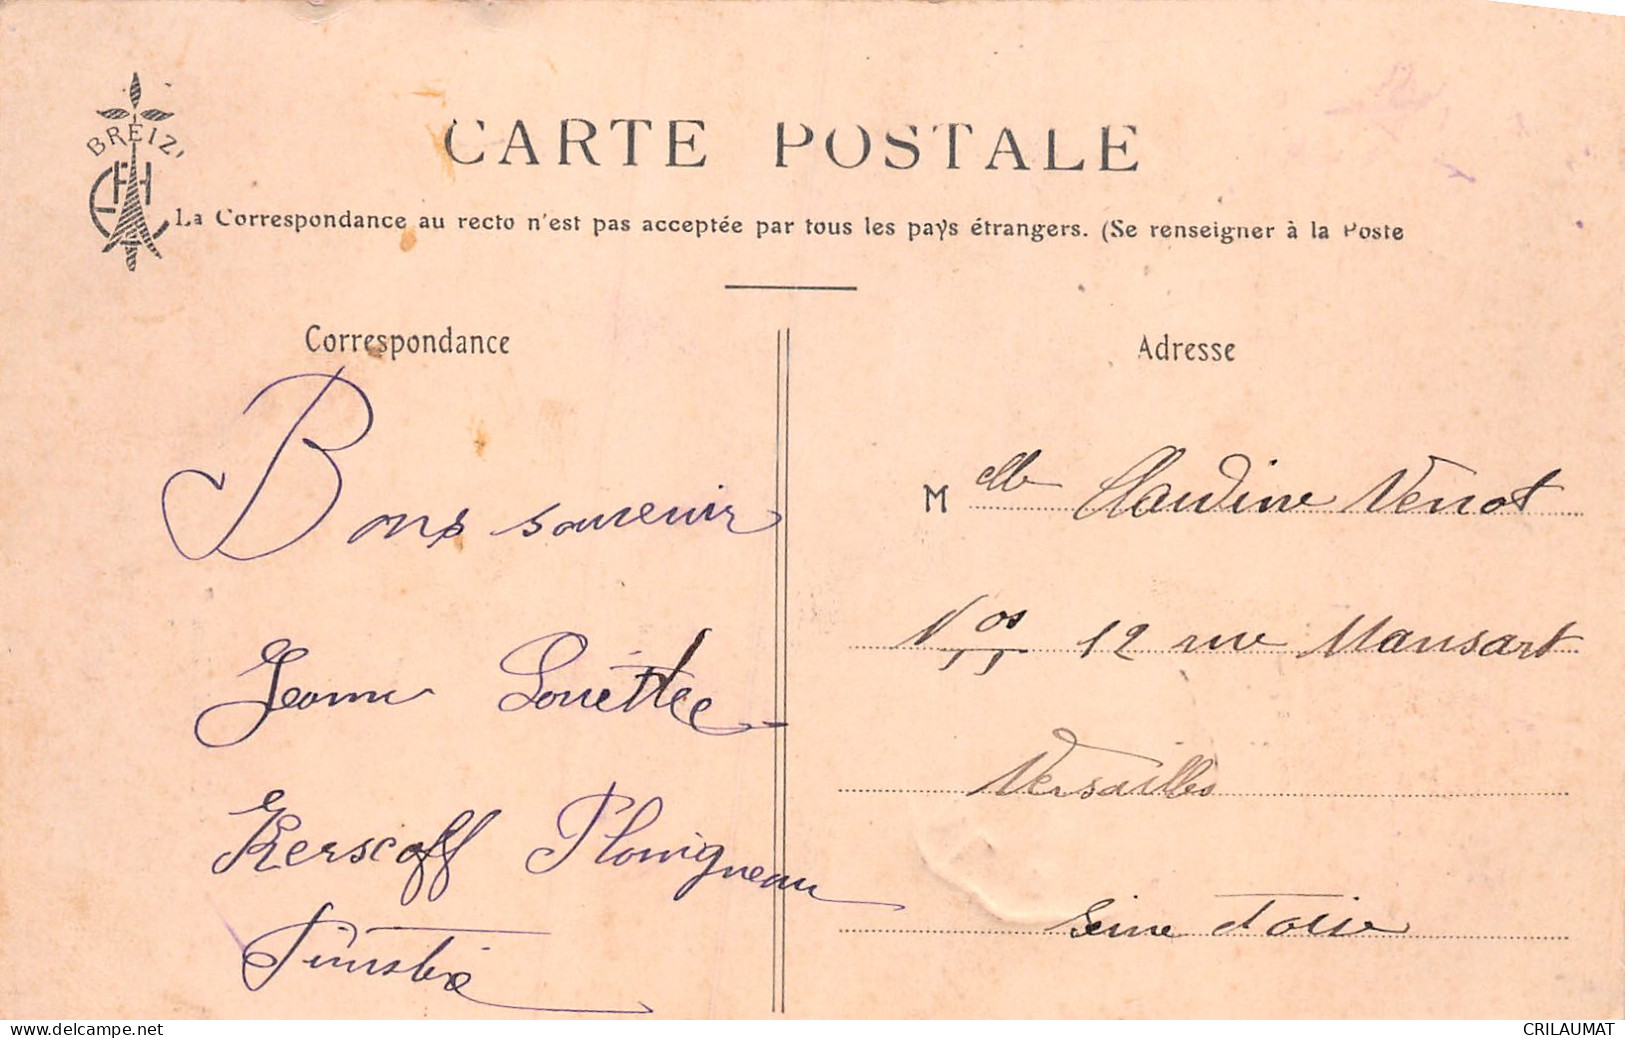 BREIZ
EHA
CARTE POSTALE
La Correspondance au recto n'est pas acceptée par tous les pays étrangers. (Se renseigner à la Poste
Correspondance
Bons souvenir
Jeanne Louëttec
Kerscoff Plouigneau
Finistère
Adresse
Melle Claudine Venot
12 rue Mansart
Versailles
Seine et Oise
delcampe.net
CRILAUMAT